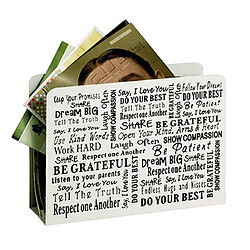 Keep Your Promises
Say, I Love You
Follow Your Dreams
SHARE
Laugh Often
DO YOUR BEST
Dream BIG
SHOW COMPASSION
Say, I Love You
Be Patient
Tell The Truth
BE GRATEFUL
Say, I Love You
Use Kind Words
Use Your Kind, Arms & Heart
Work HARD
Laugh Often
SHARE
DO YOUR BEST
SHOW COMPASSION
Respect one Another
Be Patient
BE GRATEFUL
Dream BIG
SHARE
listen to your parents
Say, I Love You
Tell The Truth
BE GRATEFUL
Say, I Love You
Endless Hugs and Kisses
Respect one Another
DO YOUR BEST
DO YOUR BEST
SHOW COMPASSION